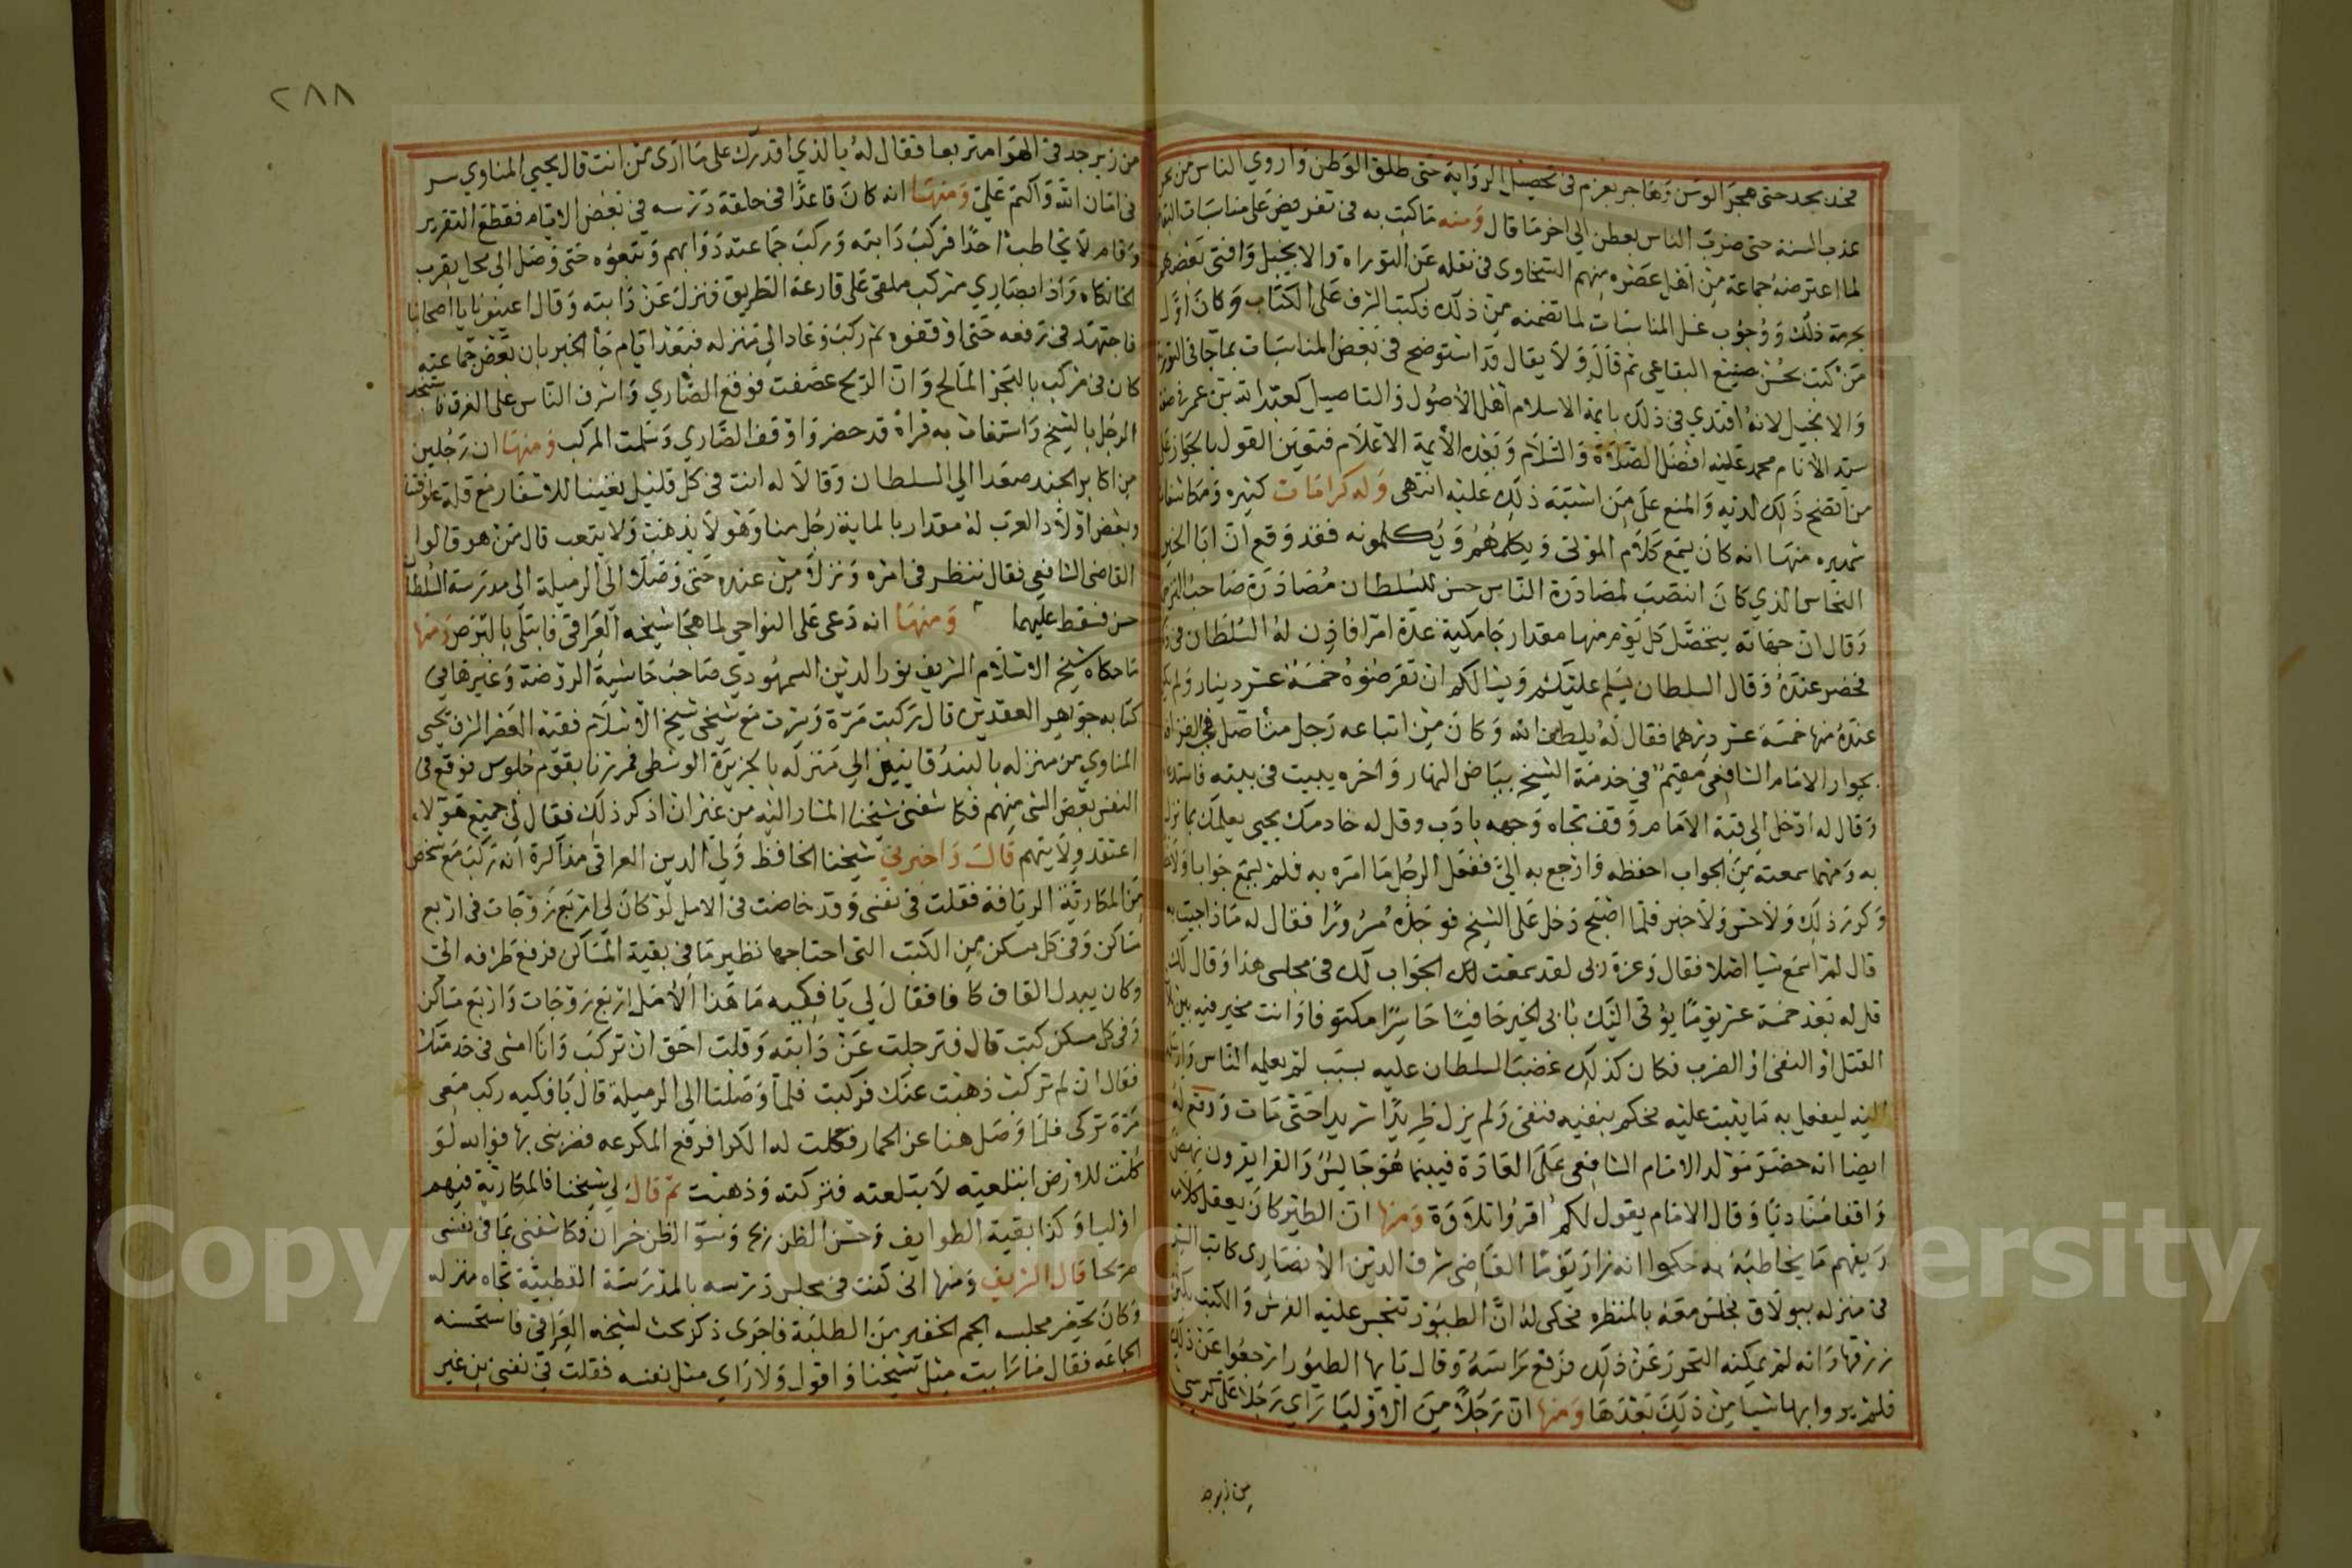 ٢٨٨
فجد يجد حتى هجر الوسن وهاجر بعزم في تحصيل الرواية حتى طلق الوطن واروي الناس من بحر
عذب السنة حتى ضرب الناس بعطن الي اخر ما قال ومنه ما كتب به في تقريض على مناسبات
لما اعترضه جماعة من اهل عصره منهم السخاوي في نقله عن التوراة والانجيل وافتى بعضهم
بحرمة ذلك ووجوب غسل المناسبات لما تضمنه من ذلك فكتب الشرف على الكتاب وكان اول
من كتب بحسن صنيع البقاعي ثم قال ولا يقال قد استوضح في بعض المناسبات بما جا في التوراة
والانجيل لانه اقتدي في ذلك بايمة الاسلام اهل الاصول والتاصيل كعبد الله بن عمر في صفة
سيد الانام محمد عليه افضل الصلاة والسلام وبعده الايمة الاعلام فتعين القول بالجواز على
من تضح ذلك لديه والمنع على من اشتبه ذلك عليه انتهى وله كرامات كثيره ومكاشفات
شهيره منها انه كان يسمع كلام الموتى ويكلمهم ويكلمونه فقد وقع ان ابا الخير
النحاس الذي كان انتصب لمصادرة الناس حسن للسلطان مصادرة صاحب
وقال ان جهاته يتحصل كل يوم منها مقدار جامكية عدة امرا فاذن له السلطان في
فحضر عنده وقال السلطان يسلم عليكم ويسالكم ان تقرضوه خمسة عشر دينار ولم يكن
عنده منها خمسة عشر درهما فقال له يلطف الله وكان من اتباعه رجل
بجوار الامام الشافعي مقيم في خدمة الشيخ بياض النهار واخره يبيت في بيته فاستدعاه
وقال له ادخل الى قبة الامام وقف تجاه وجهه بادب وقل له خادمك يحيى يعلمك بما نزل
به ومهما سمعته من الجواب احفظه وارجع به الي ففعل الرجل ما امره به فلم يسمع جوابا
وكرر ذلك ولا حس ولا خبر فلما اصبح دخل على الشيخ فوجده مسرورا فقال له ماذا اجيت به
قال لم اسمع شيا اصلا فقال وعزة ربي لقد سمعت لك الجواب لك في مجلسي هذا وقال لك
قل له بعد خمسة عشر يوما يؤتى اليك بابي الخير حافيا حاسرا مكتوفا وانت مخير فيه بين
القتل او النفي او الضرب فكان كذلك غضب السلطان عليه بسبب لم يعلمه الناس
اليه ليفعل به ما يثبت عليه فحكم بنفيه فنفي ولم يزل طريدا شريدا حتى مات ووقع له
ايضا انه حضر مولد الامام الشافعي على العادة فبينما هو جالس والقرا يقرون نهض
واقفا مناديا وقال الامام يقول لكم اقروا تلاوة ومنها ان الطير كان يعقل كلامه
ويفهم ما يخاطبه به حكموا انه زار يوما القاضي شرف الدين الانصاري كاتب السر
في منزله ببولاق فجلس معه بالمنظره فحكى له ان الطيور تنجس عليه الفرش والكتب
زرقها وانه لم يمكنه التحرز عن ذلك فرفع راسه وقال يايها الطيور ارجعوا عن ذلك
فلم يروا بها شيا من ذلك بعدها ومنها ان رجلا من الاوليا راي رجلا على كرسي
من زبرجد
من زبرجد في الهوا متربعا فقال له بالذي اقدرك على ما ارى من انت قال يحيى المناوي سر
في امان الله واكتم علي ومنها انه كان قاعدا في حلقة درسه في بعض الايام فقطع التقرير
وقام لا يخاطب احدا فركب دابته وركب جماعته دوابهم وتبعوه حتى وصل الى محل بقرب
الخانكاه واذا بصاري مركب ملقى على قارعة الطريق فنزل عن دابته وقال اعينونا يا اصحابنا
فاجتهد في رفعه حتى اوقفوه ثم ركب وعاد الى منزله فبعد ايام جا الخبر بان بعض جماعته
كان في مركب بالبحر المالح وان الريح عصفت فوقع الصاري واشرف الناس على الغرق فاستنجد
الرجل بالشيخ واستغاث به فراه قد حضر واوقف الصاري وسلمت المركب ومنها ان رجلين
من اكابر الجند صعدا الي السلطان وقالا له انت في كل قليل تعيننا للاسفار مع قلة علوفتنا
وبعض اولاد العرب له مقدار بالماية رجل منا وهو لا يذهب ولا يتعب قال من هو قالوا
القاضي الشافعي فقال ننظر في امره ونزلا من عنده حتى وصلا الى الرميلة الى مدرسة السلطان
حسن فسقط عليهما ومنها انه دعى على النواجي لما هجا شيخه العراقي فابتلي بالبرص ومنها
ما حكاه شيخ الاسلام الشريف نور الدين السمهودي صاحب حاشية الروضة وغيرها في
كتابه جواهر العقدين قال ركبت مرة وسرت مع شيخي شيخ الاسلام فقيه العصر الشرف يحيى
المناوي من منزله بالبندقانيين الي منزله بالجزيرة الوسطى فمررنا بقوم جلوس فوقع في
النفس بعض الشي منهم فكاشفني شيخنا المشار اليه من غير ان اذكر ذلك فقال لي جميع هؤلاء
اعتقد ولايتهم قال واخبرني شيخنا الحافظ ولي الدين العراقي مذاكرة انه ركب مع شخص
من المكارية الريافة فقلت في نفسي وقد خاضت في الامل لو كان لي اربع زوجات في اربع
مساكن وفي كل مسكن من الكتب التي احتاجها نظير ما في بقية المساكن فرفع طرفه الي
وكان يبدل القاف كافا فقال لي يا فكيه ما هذا الامل اربع زوجات واربع مساكن
وفي كل مسكن كتب قال فترجلت عن دابته وقلت احق ان تركب وانا امشي في خدمتك
فقال ان لم تركب ذهبت عنك فركبت فلما وصلنا الى الرميلة قال يا فكيه ركب معي
مرة تركي فلما وصل هنا عن الحمار فقلت له الكرا فرفع المكرعه فضربني بها فوالله لو
قلت للارض ابتلعيه لابتلعته فتركته وذهبت ثم قال لي شيخنا فالمكارية فيهم
اوليا وكذا بقية الطوايف وحسن الظن ربح وسؤ الظن خسران فكاشفني بما في نفسي
صريحا قال الشريف ومنها انى كنت في مجلس درسه بالمدرسة القطبية تجاه منزله
وكان يحضر مجلسه الجم الغفير من الطلبة فاجرى ذكر بحث لشيخه العراقي فاستحسنه
الجماعه فقال ما رايت مثل شيخنا واقول ولا راي مثل نفسه فقلت في نفسي من غير
Copyright © King Saud University